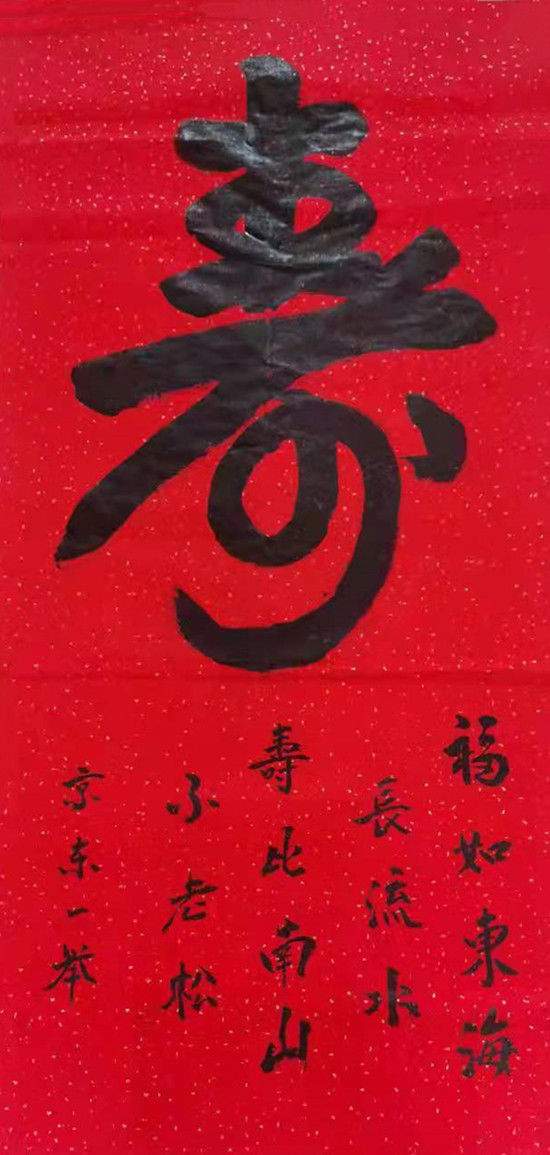 壽
福如東海
長流水
壽比南山
不老松
京东一举